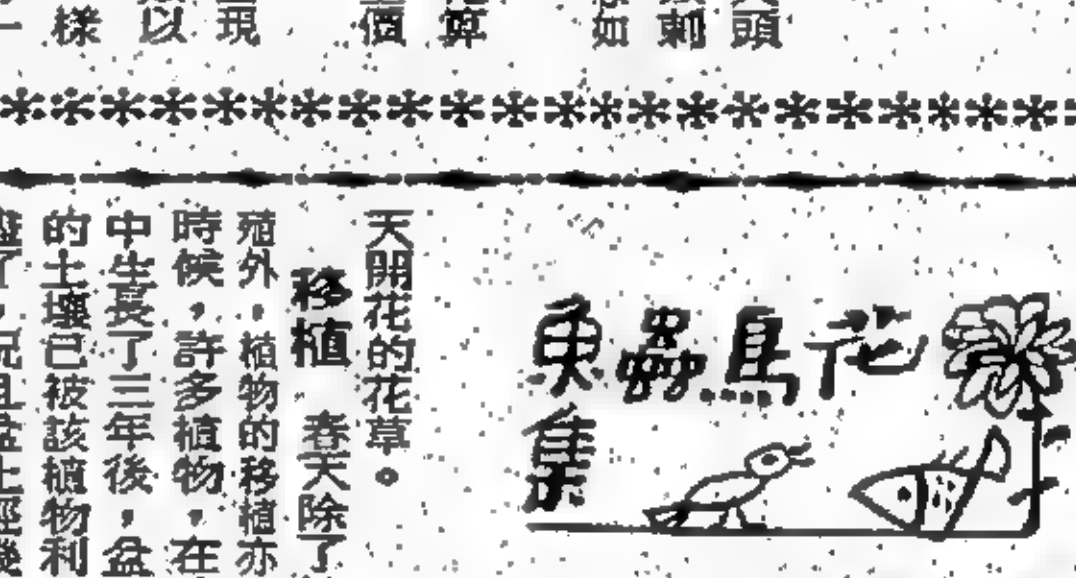 頭
刺
如
算
個
現
以
樣
花鳥蟲魚
集
天開花的花草。
移植 春天除了
殖外，植物的移植亦
時候，許多植物，在
中生長了三年後，盆
的土壤已被該植物利
了，況且盆土經幾